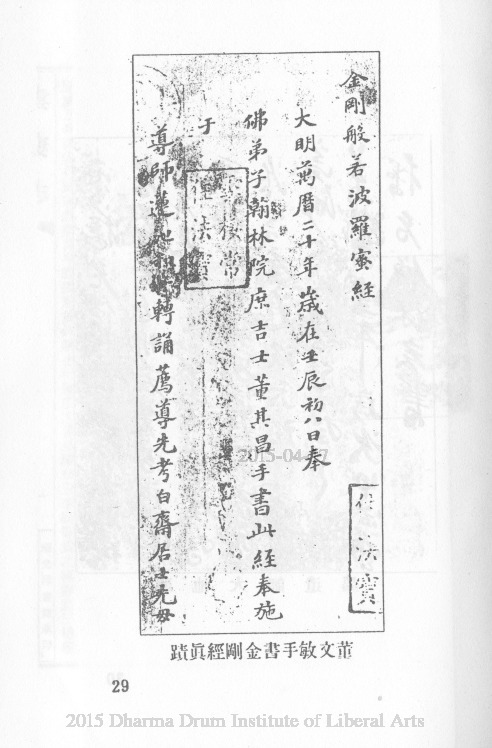 金剛般若波羅蜜經
大明萬曆二十年歲在壬辰初八日奉
佛弟子翰林院庶吉士董其昌手書此經奉施
于
導師蓮池和尚轉誦薦導先考白齋居士先母
住法寶
常
住法寶
2015-04-17
董文敏手書金剛經眞蹟
29
2015 Dharma Drum Institute of Liberal Arts